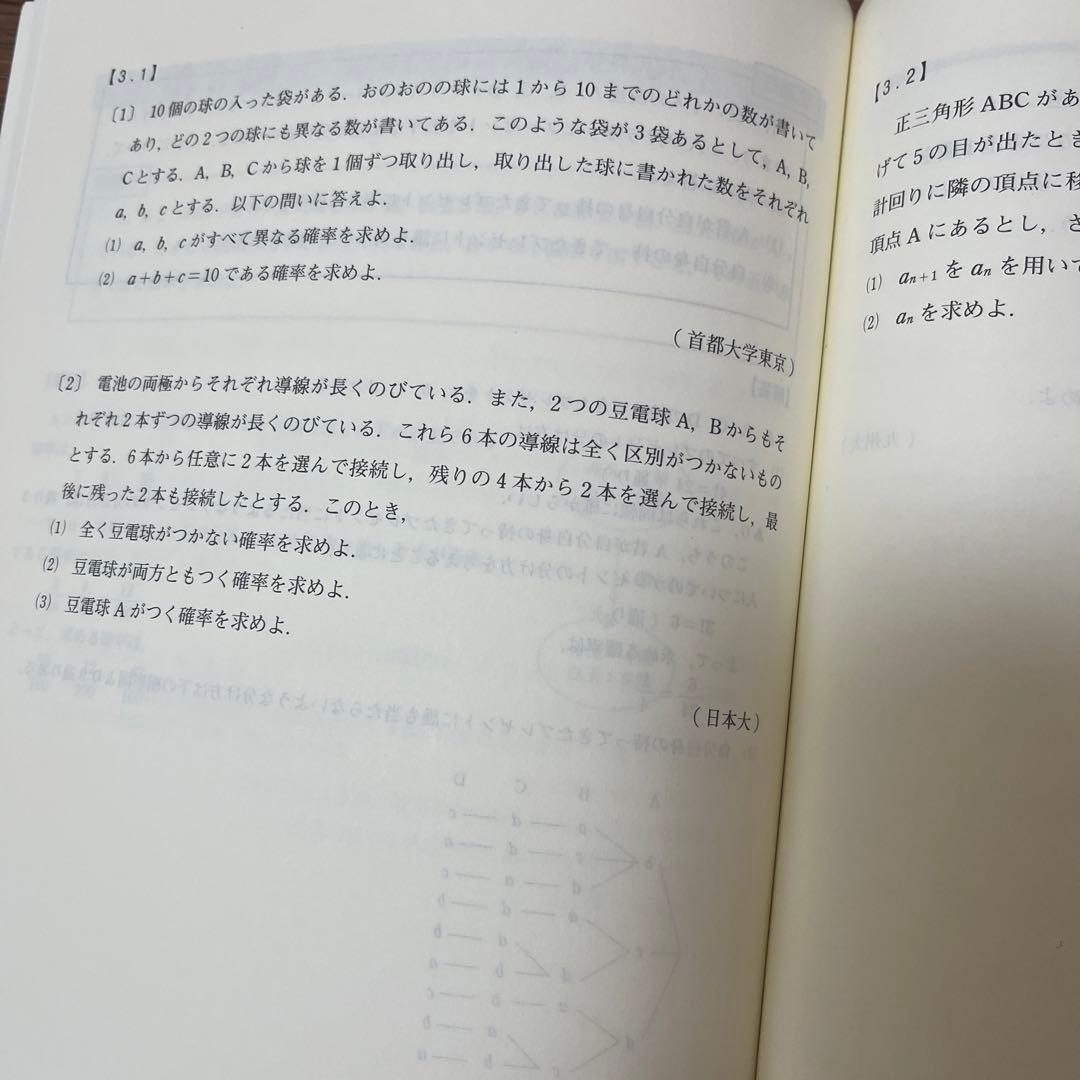 【3.1】
〔1〕 10個の球の入った袋がある．おのおのの球には1から10までのどれかの数が書いて
あり，どの2つの球にも異なる数が書いてある．このような袋が3袋あるとして，A，B，
Cとする．A，B，Cから球を1個ずつ取り出し，取り出した球に書かれた数をそれぞれ
a，b，cとする．以下の問いに答えよ．
(1) a，b，cがすべて異なる確率を求めよ．
(2) a+b+c=10である確率を求めよ．
（首都大学東京）
〔2〕 電池の両極からそれぞれ導線が長くのびている．また，2つの豆電球A，Bからもそ
れぞれ2本ずつの導線が長くのびている．これら6本の導線は全く区別がつかないもの
とする．6本から任意に2本を選んで接続し，残りの4本から2本を選んで接続し，最
後に残った2本も接続したとする．このとき，
(1) 全く豆電球がつかない確率を求めよ．
(2) 豆電球が両方ともつく確率を求めよ．
(3) 豆電球Aがつく確率を求めよ．
（日本大）
【3.2】
正三角形ABCがあ
げて5の目が出たとき
計回りに隣の頂点に移
頂点Aにあるとし，さ
(1) aₙ₊₁をaₙを用いて
(2) aₙを求めよ．